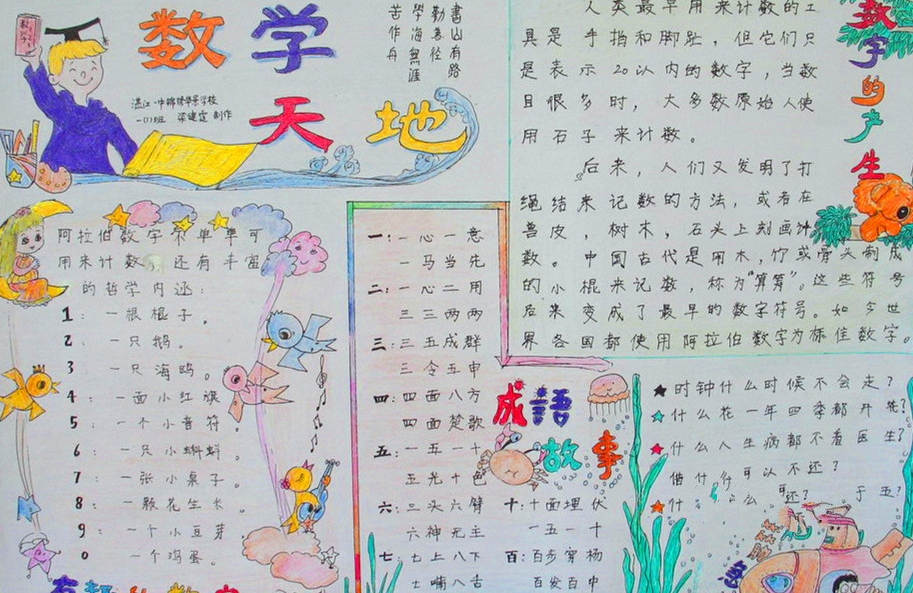 数学
天地
書山有路
勤為径
學海無涯
苦作舟
湛江一中锦绣华景学校
一(1)班 梁建定 制作
阿拉伯数字不单单可
用来计数,还有丰富
的哲学内涵:
1:一根棍子。
2:一只鹅。
3 一只海鸥。
4:一面小红旗
5:一个小音符。
6:一只小蝌蚪。
7:一张小桌子。
8:一颗花生长。
9:一个小豆芽
0 一个鸡蛋。
一:一心一意
一马当先
二:一心二用
三三两两
三:三五成群
三令五申
四:四面八方
四面楚歌
五:一五一十
五光十色
六:三头六臂
六神无主
七:七上八下
七嘴八舌
十:十面埋伏
一五一十
百:百步穿杨
百发百中
成語
故事
数字的产生
人类最早用来计数的工
具是手指和脚趾,但它们只
是表示20以内的数字,当数
目很多时,大多数原始人使
用石子来计数。
后来,人们又发明了打
绳结来记数的方法,或者在
兽皮,树木,石头上刻画计
数。中国古代是用木,竹或骨头制成
的小棍来记数,称为"算筹"。这些符号
后来变成了最早的数字符号。如今世
界各国都使用阿拉伯数字为标佳数字。
★时钟什么时候不会走?
★什么花一年四季都开花?
★什么人生病都不看医生?
借什么可以不还?
★什么